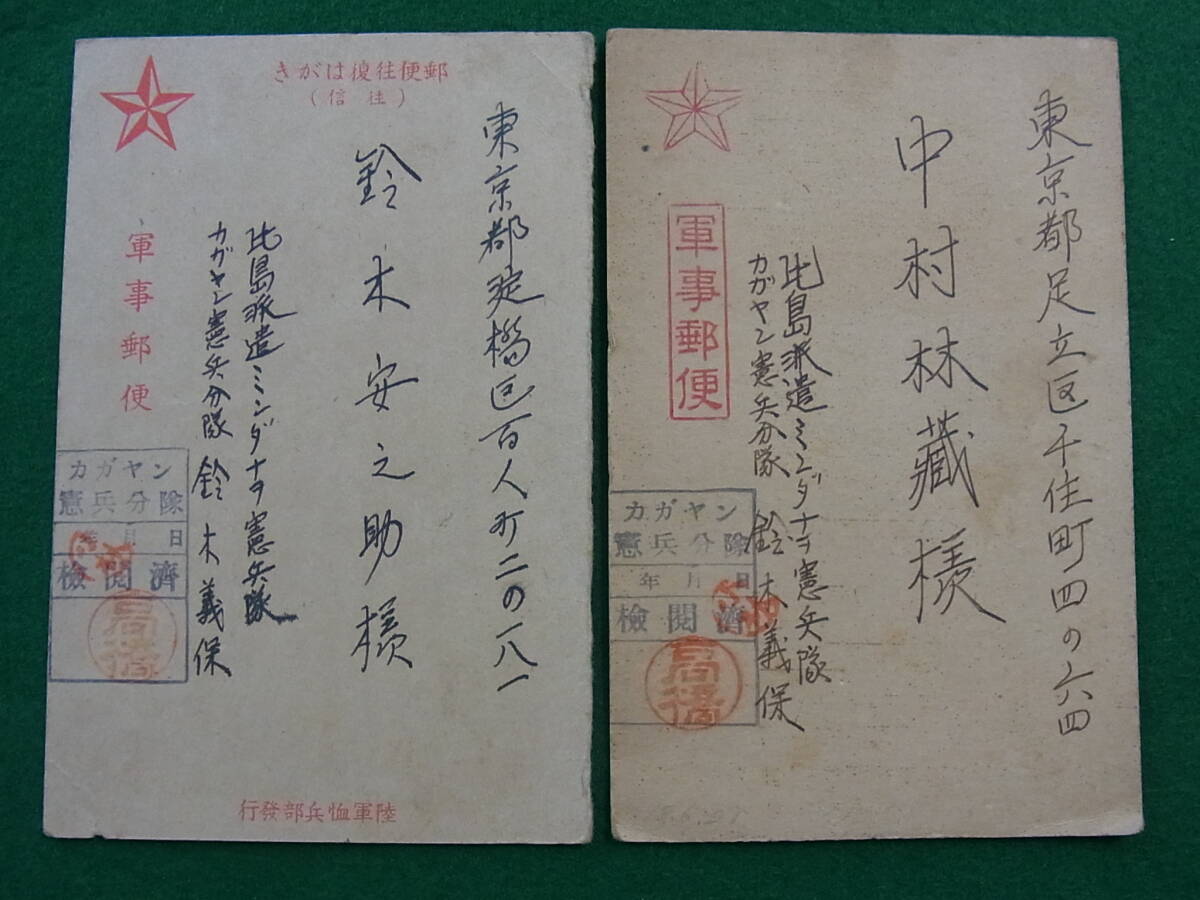 郵便往復はがき
（往信）
軍事郵便
東京都淀橋区百人町二の一八一
鈴木安之助様
比島派遣ミンダナヲ憲兵隊
カガヤン憲兵分隊 鈴木義保
カガヤン
憲兵分隊
年月日
檢閲濟
高橋
陸軍恤兵部發行
軍事郵便
東京都足立区千住町四の六四
中村林藏様
比島派遣ミンダナヲ憲兵隊
カガヤン憲兵分隊 鈴木義保
カガヤン
憲兵分隊
年月日
檢閲濟
高橋